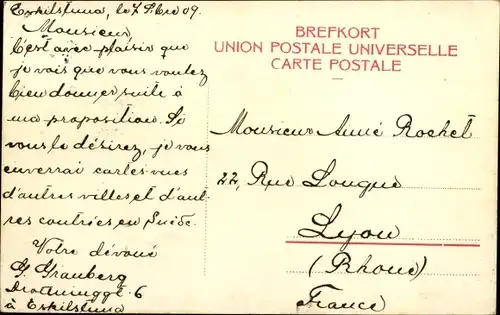 Eskilstuna, le 7 Fbre 09.
Monsieur,
C'est avec plaisir que
je vois que vous voulez
bien donner suite à
ma proposition. Si
vous le désirez, je vous
enverrai cartes-vues
d'autres villes et d'aut-
res contrées en Suède.
Votre dévoué
G. Granberg
6
à Eskilstuna
BREFKORT
UNION POSTALE UNIVERSELLE
CARTE POSTALE
Monsieur Aimé Rochet
22, Rue Longue
Lyon
(Rhone)
France